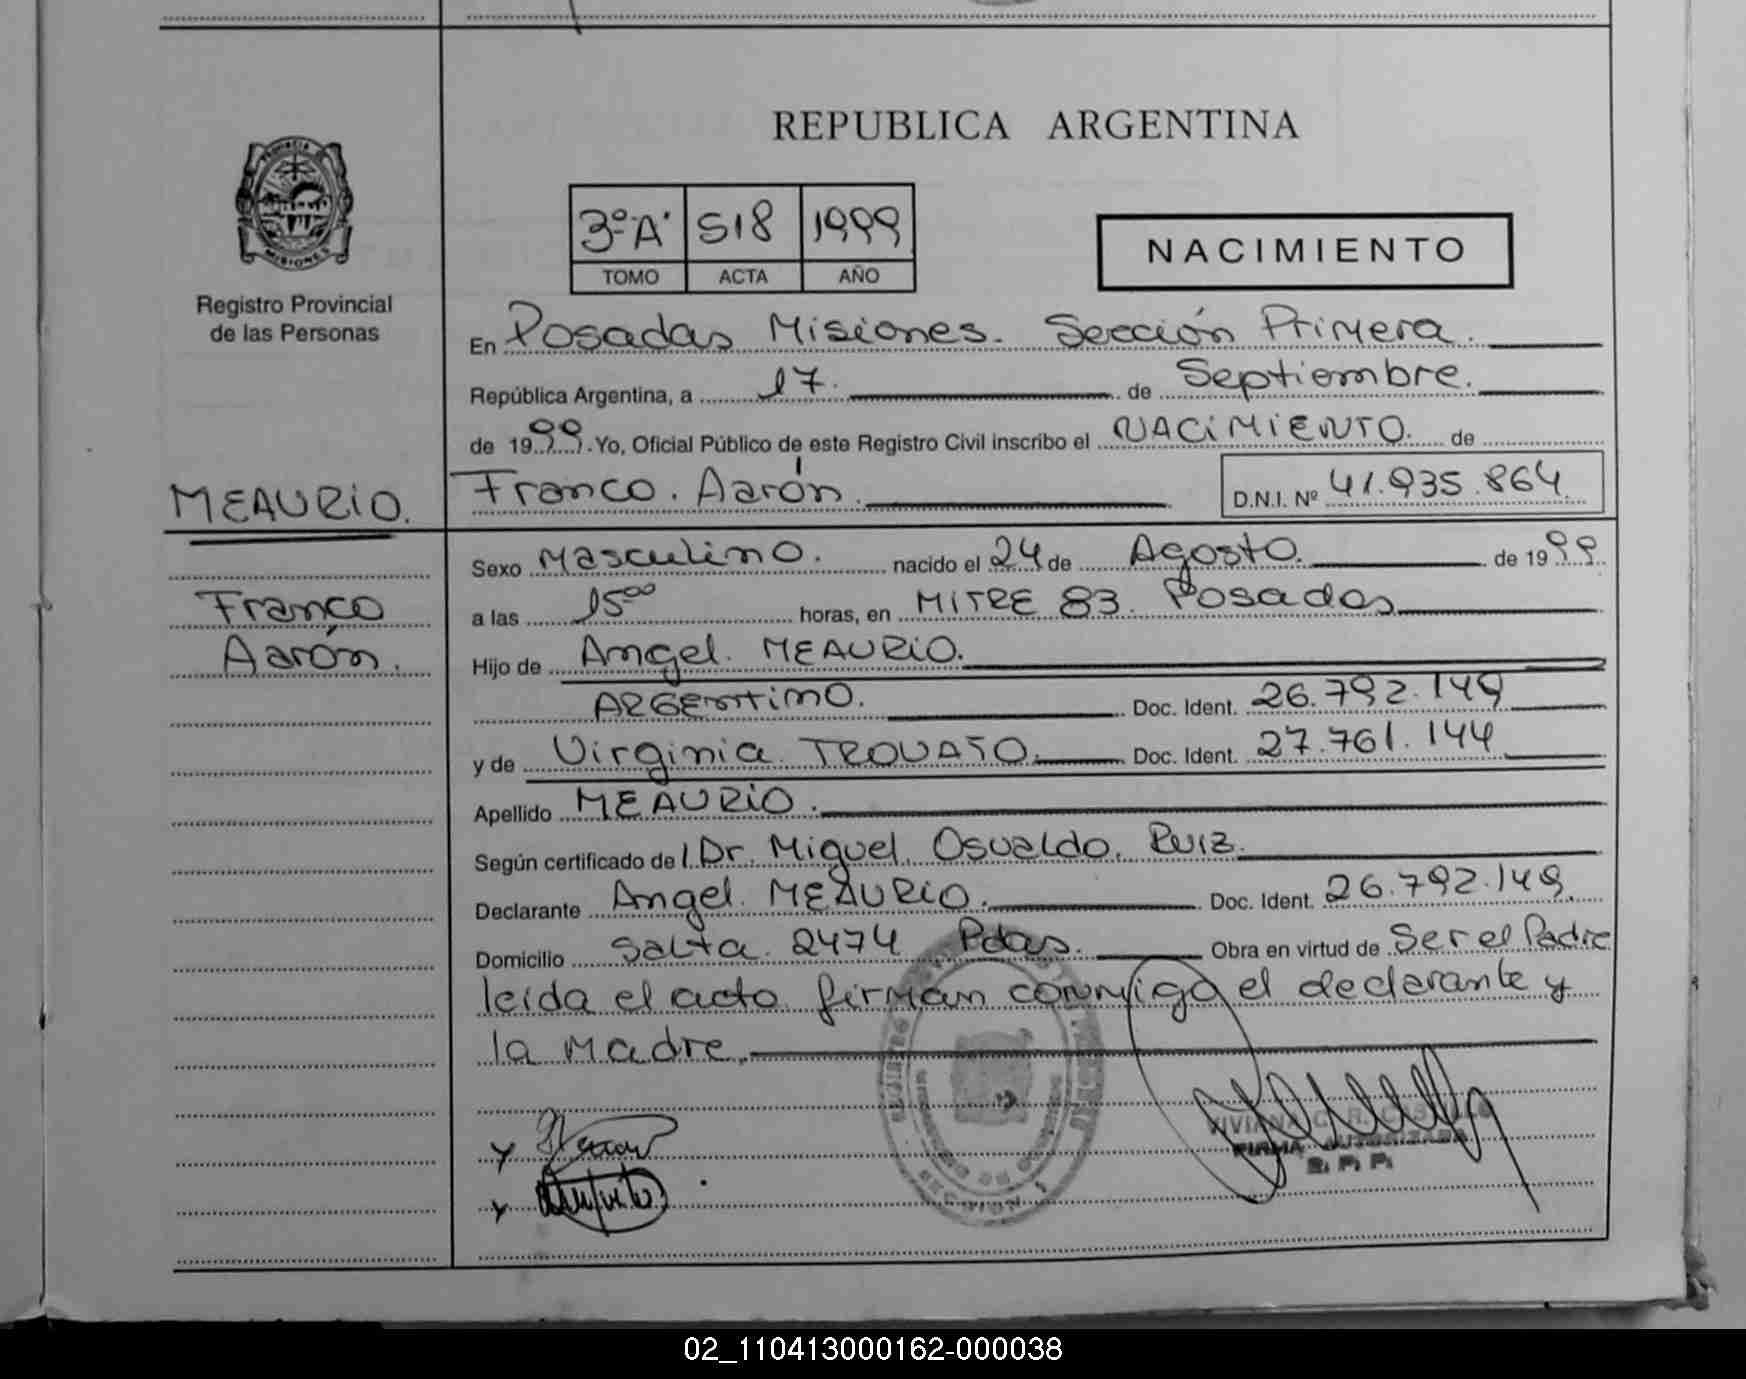 REPUBLICA ARGENTINA
PROVINCIA
MISIONES
Registro Provincial
de las Personas
3º "A" 518 1999
TOMO ACTA AÑO
NACIMIENTO
En Posadas Misiones. Sección Primera.
República Argentina, a 17. de Septiembre.
de 1999. Yo, Oficial Público de este Registro Civil inscribo el NACIMIENTO. de
MEAURIO.
Franco. Aarón. D.N.I. Nº 41.935.864
Sexo Masculino. nacido el 24 de Agosto. de 1999
Franco
a las 15⁰⁰ horas, en MITRE 83. Posadas
Aarón.
Hijo de Angel. MEAURIO.
ARGENTINO. Doc. Ident. 26.792.149
y de Virginia TROVATO. Doc. Ident. 27.761.144
Apellido MEAURIO.
Según certificado de l Dr. Miguel Osvaldo. Ruiz.
Declarante Angel. MEAURIO. Doc. Ident. 26.792.149.
Domicilio Salta 2474 Pdas. Obra en virtud de Ser el Padre
leida el acto firman conmigo el declarante y
la Madre.
VIVIANA
FIRMA AUTORIZADA
R. P. P.
SECCION 1
02_110413000162-000038